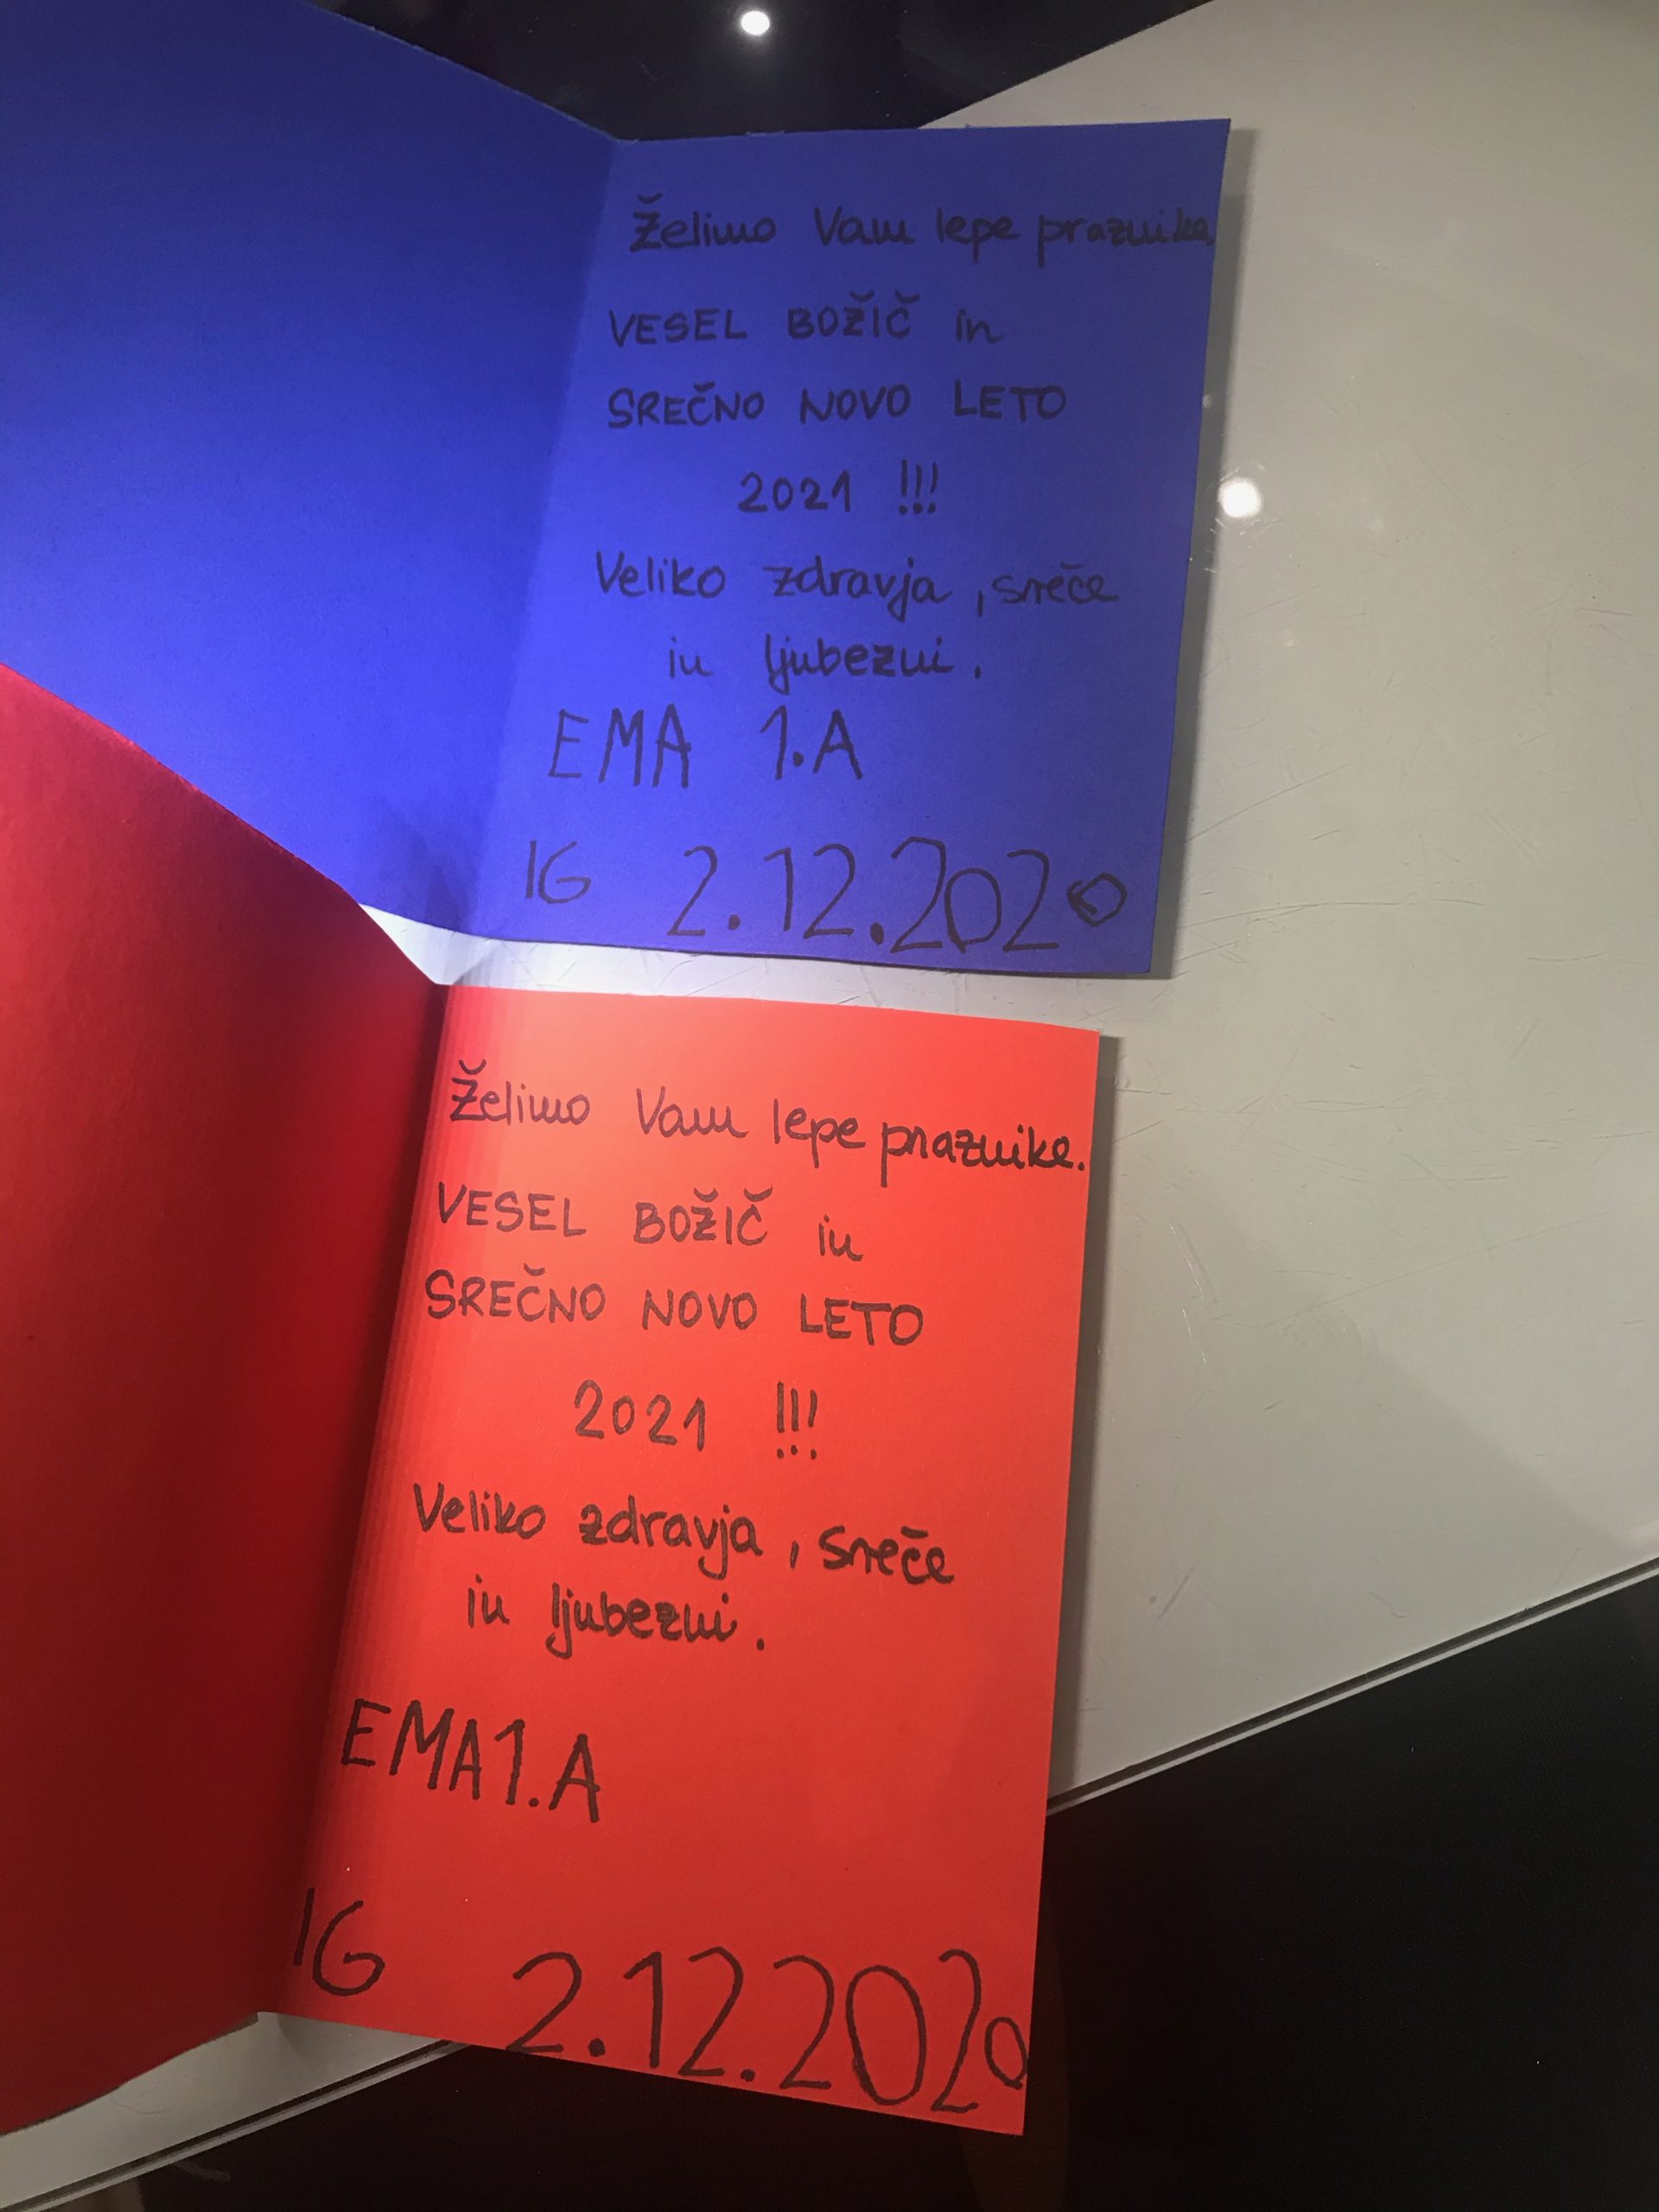 Želimo Vam lepe praznike
VESEL BOŽIČ in
SREČNO NOVO LETO
2021 !!!
Veliko zdravja, sreče
in ljubezni.
EMA 1.A
IG 2.12.2020
Želimo Vam lepe praznike.
VESEL BOŽIČ in
SREČNO NOVO LETO
2021 !!!
Veliko zdravja, sreče
in ljubezni.
EMA 1.A
IG 2.12.2020